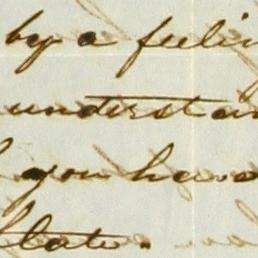 by a feelin
understan
you have
State.